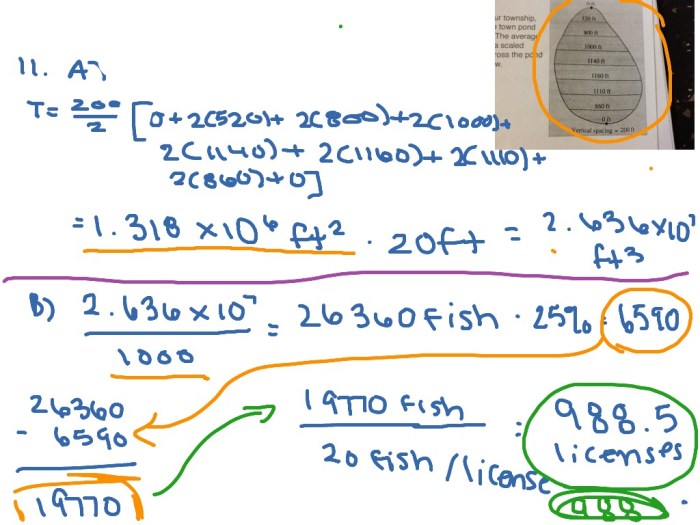 ur township,
town pond
The average
a scaled
ross the pond
w.
0 ft
520 ft
800 ft
1000 ft
1140 ft
1160 ft
1110 ft
860 ft
0 ft
Vertical spacing = 200 ft
11. A)
T = 200/2 [0 + 2(520) + 2(800) + 2(1000) +
2(1140) + 2(1160) + 2(1110) +
2(860) + 0]
= 1.318 × 10⁶ ft² · 20ft = 2.636 × 10⁷
ft3
B) 2.636 × 10⁷ / 1000 = 26360 Fish · 25% = 6590
26360
- 6590
19770
19770 Fish / 20 Fish/license = 988.5
licenses
988